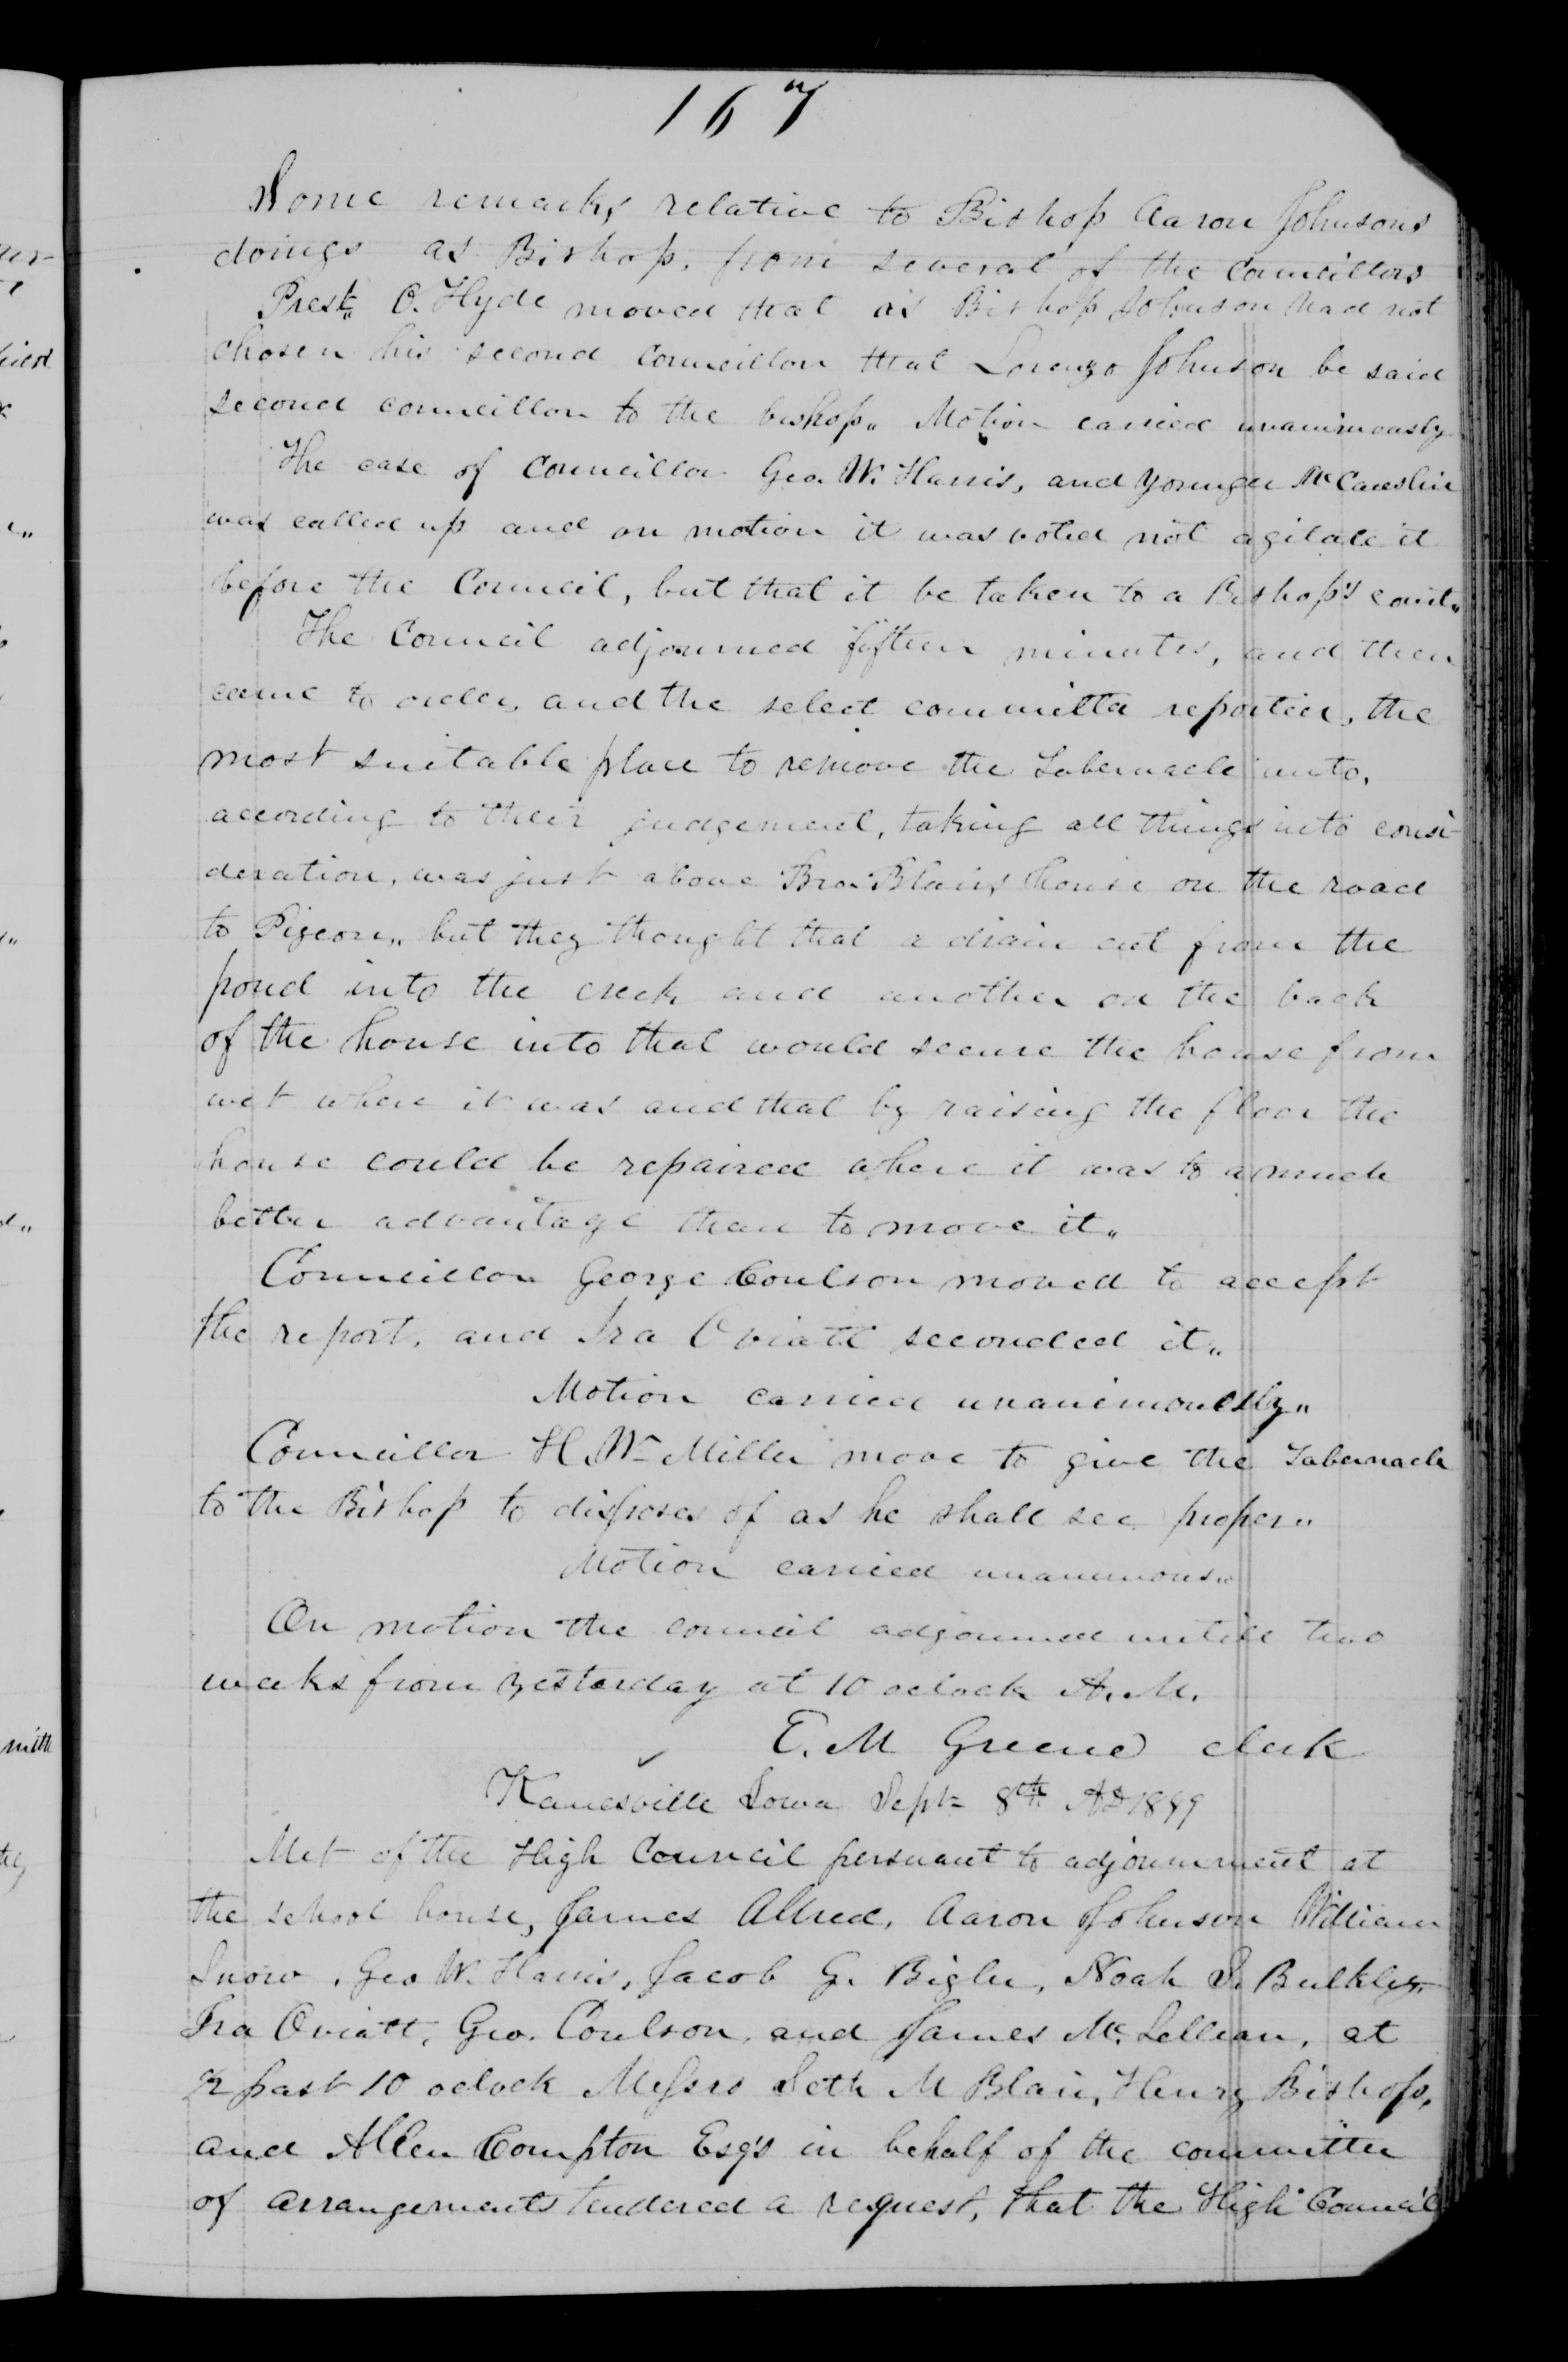 167
Some remarks relative to Bishop Aaron Johnsons
doings as Bishop, from several of the councillors
Prest„ O. Hyde moved that as Bishop Johnson had not
chosen his second councillor that Lorenzo Johnson be said
second councillor to the bishop„ Motion carried unanimously
The case of Councillor Geo. W. Harris, and Younger McCaeslin
was called up and on motion it was voted not agitate it
before the Council, but that it be taken to a Bishop's court„
The Council adjourned fifteen minutes, and then
came to order, and the select committee reported, the
most suitable place to remove the Tabernacle unto,
according to their judgement, taking all things into consi-
deration, was just above Bro. Blairs house on the road
to Pigeon„ but they thought that a drain cut from the
pond into the creek and another on the back
of the house into that would secure the house from
wet where it was and that by raising the floor the
house could be repaired where it was to a much
better advantage than to move it„
Councillor George Coulson moved to accept
the report, and Ira Oviatt seconded it„
Motion carried unanimously„
Councillor H. W. Miller move to give the Tabernacle
to the Bishop to disposes of as he shall see proper„
Motion carried unanimous„
On motion the council adjourned untill two
weeks from yesterday at 10 oclock A. M.
E. M Greene clerk
Kanesville Iowa Sept= 8th AD 1849
Met of the High Council persuant to adjournment at
the school house, James Allred, Aaron Johnson William
Snow, Geo W. Harris, Jacob G. Bigler, Noah S. Bulkley,
Ira Oviatt, Geo. Coulson, and James Mc. Lellan, at
½ past 10 oclock Messrs Seth M Blair, Henry Bishop,
and Allen Compton Esq's in behalf of the committee
of arrangements tendered a request, that the High Council